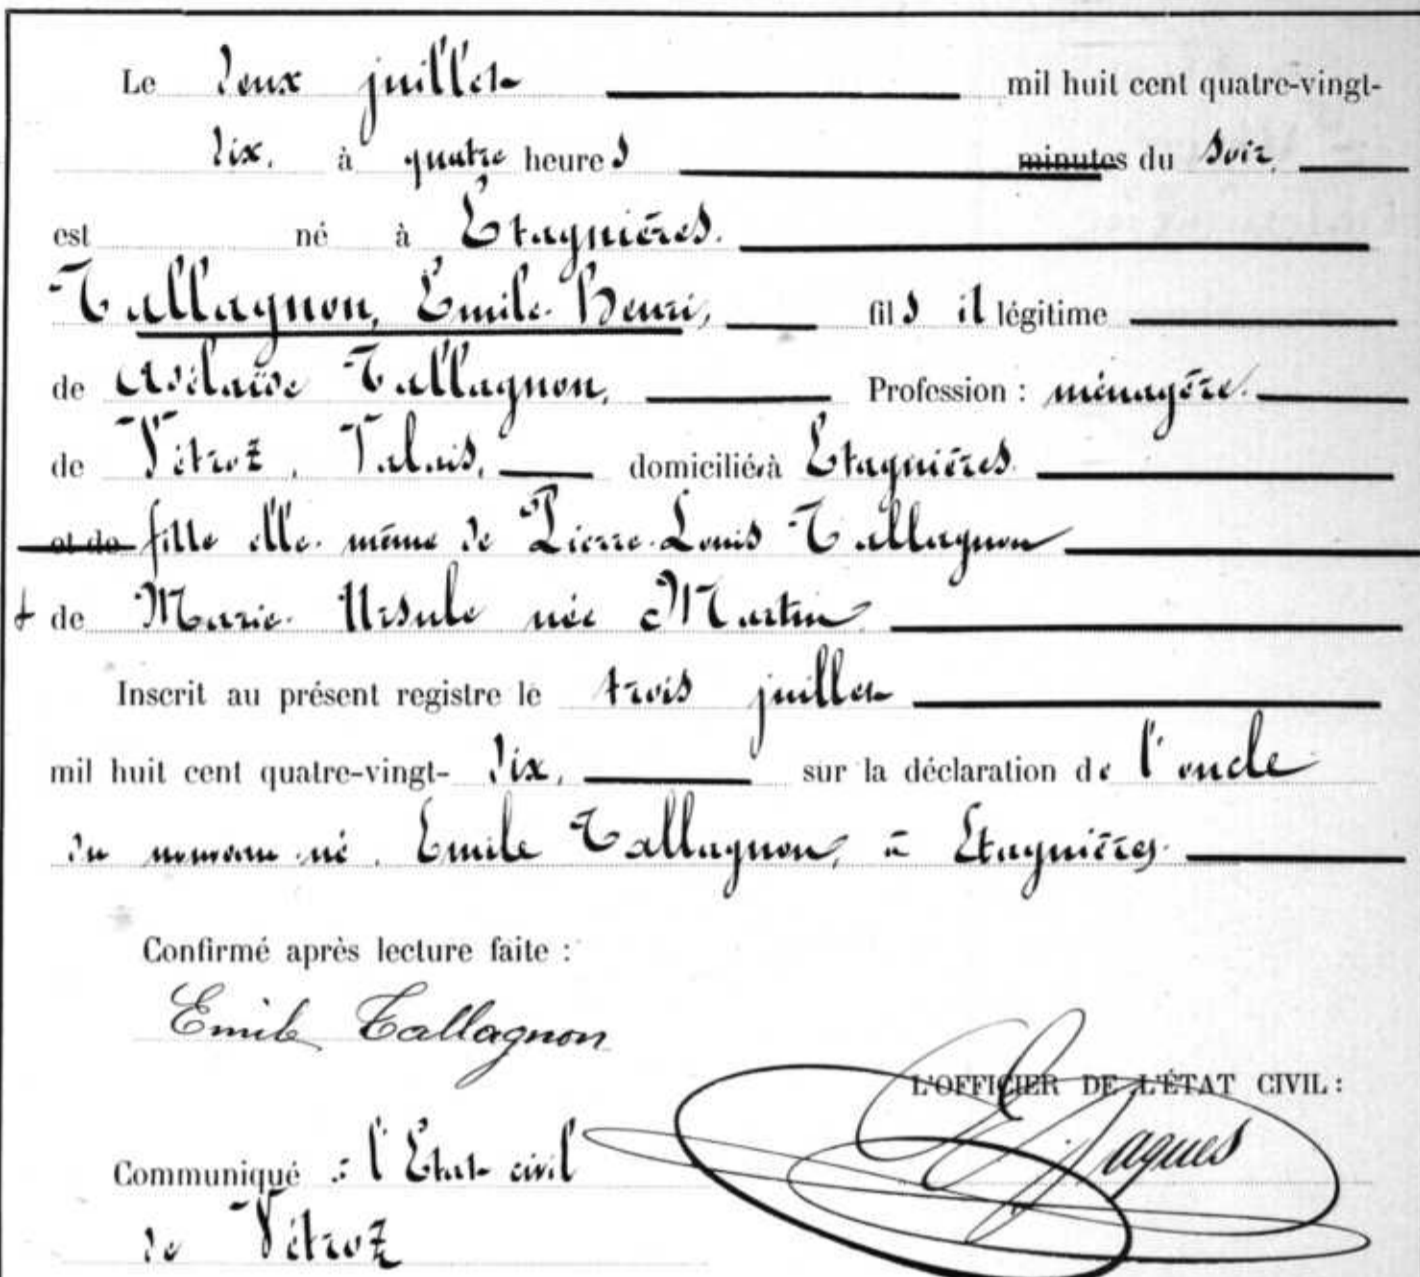 Le deux juillet mil huit cent quatre-vingt-
dix, à quatre heures minutes du soir,
est né à Etagnières.
Tallagnon, Emile-Henri, fils illégitime
de Adélaïde Tallagnon, Profession : ménagère.
de Vétroz, Valais, domiciliés à Etagnières.
et de fille elle-même de Pierre-Louis Tallagnon
& de Marie-Ursule née Martin.
Inscrit au présent registre le trois juillet
mil huit cent quatre-vingt- dix, sur la déclaration de l'oncle
du nouveau-né, Emile Tallagnon, à Etagnières.
Confirmé après lecture faite :
Emile Tallagnon
L'OFFICIER DE L'ÉTAT CIVIL :
E Jaques
Communiqué à l'Etat-civil
de Vétroz